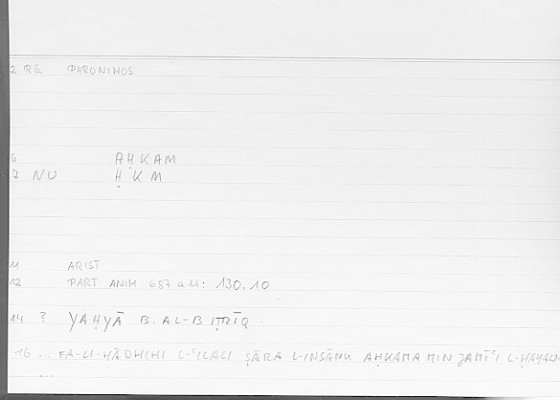 2 RE PARONIMOS
6 AḤKAM
7 NU ḤKM
11 ARIST
12 PART ANIM 687 a 11: 130.10
14 ? YAḤYĀ B. AL-BIṬRĪQ
16 .. FA-LI-HĀDHIHI L-ʿILALI ṢĀRA L-INSĀNU AḤKAMA MIN JAMĪʿI
...